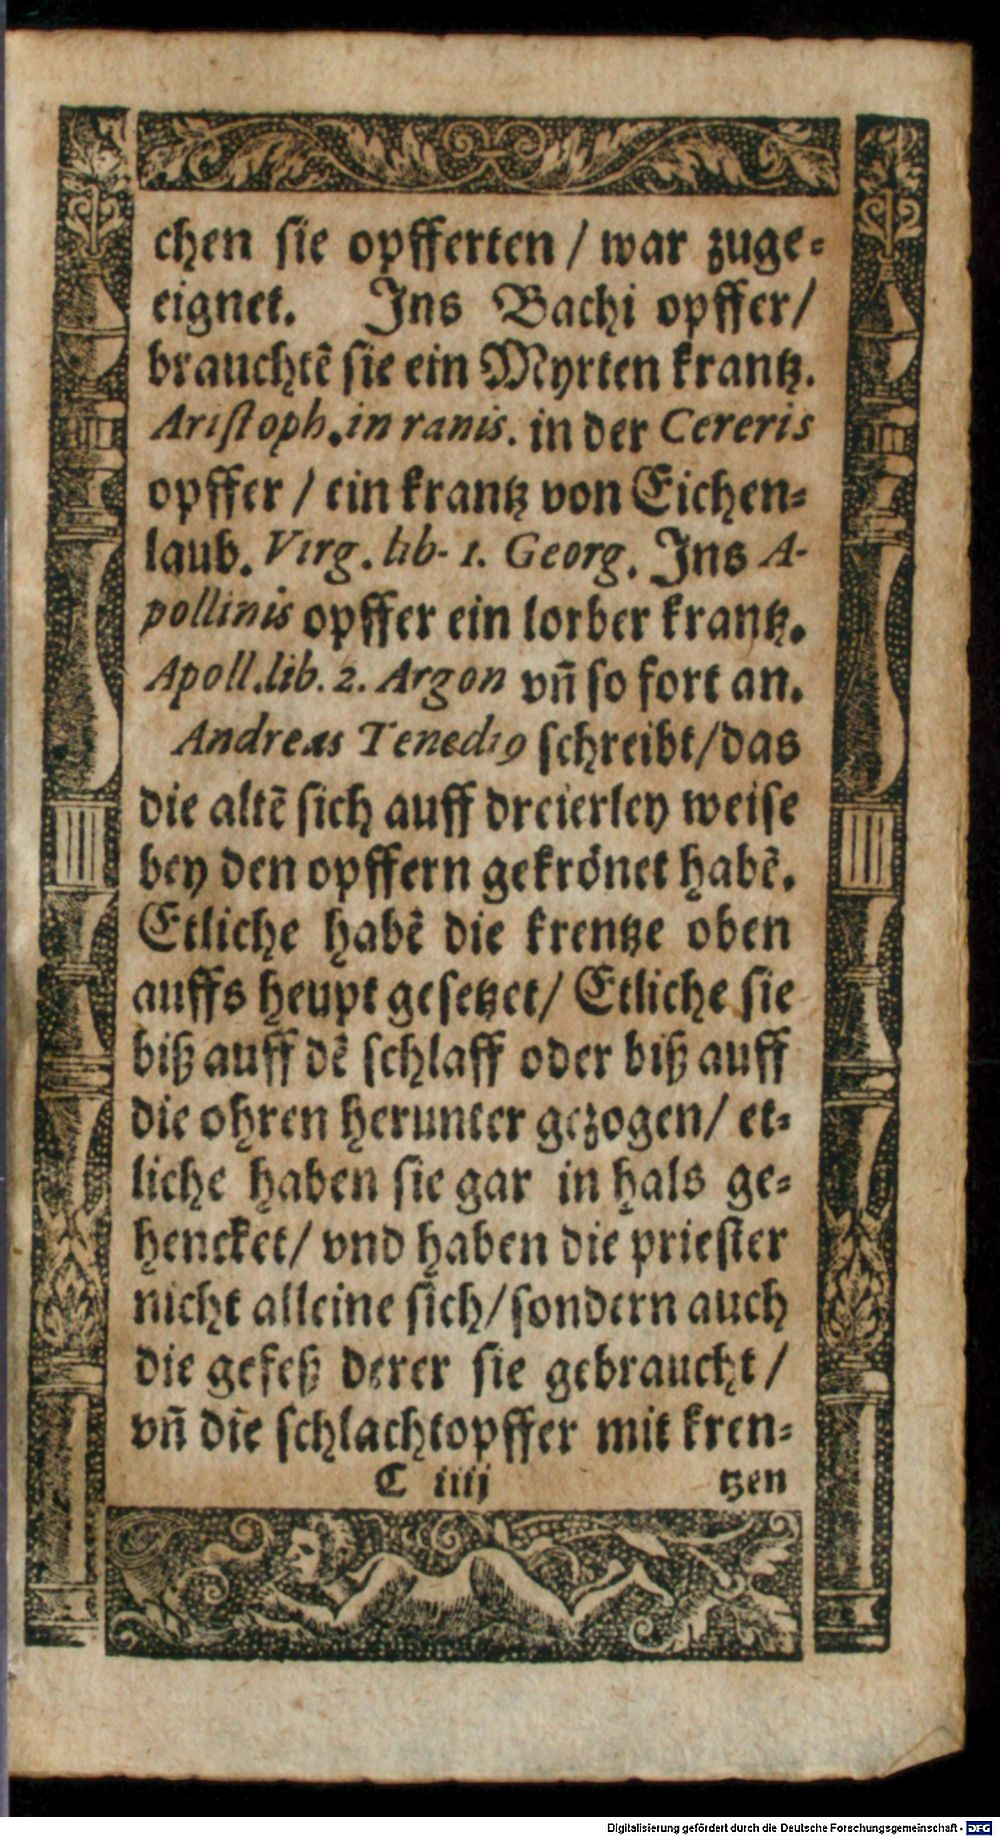 chen sie opfferten / war zuge⸗
eignet. Ins Bachi opffer/
brauchtẽ sie ein Myrten krantz.
Aristoph. in ranis. in der Cereris
opffer / ein krantz von Eichen⸗
laub. Virg. lib. 1. Georg. Ins A-
pollinis opffer ein lorber krantz.
Apoll. lib. 2. Argon vñ so fort an.
Andreas Tenediꝰ schreibt/das
die altẽ sich auff dreierley weise
bey den opffern gekrönet habẽ.
Etliche habẽ die krentze oben
auffs heupt gesetzet/ Etliche sie
biß auff dẽ schlaff oder biß auff
die ohren herunter gezogen/ et⸗
liche haben sie gar in hals ge⸗
hencket/ vnd haben die priester
nicht alleine sich/sondern auch
die gefeß derer sie gebraucht/
vñ die schlachtopffer mit kren⸗
C iiij tzen
Digitalisierung gefördert durch die Deutsche Forschungsgemeinschaft - DFG